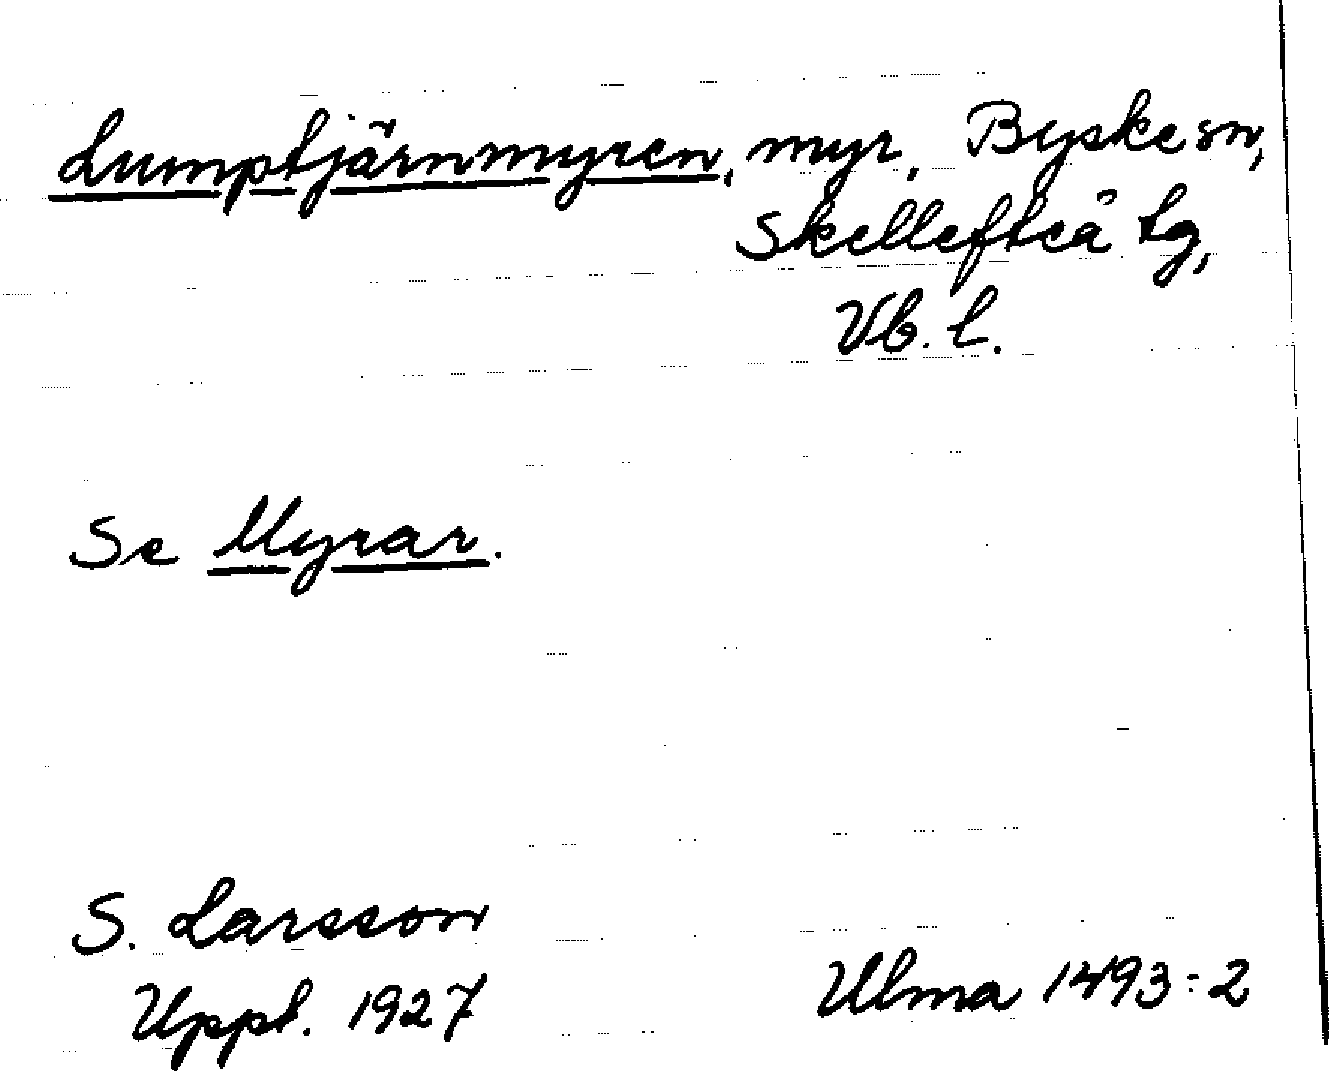 Lumptjärnmyren, myr, Byske sn,
Skellefteå tg,
Vb. l.
Se Myrar.
S. Larsson
Uppt. 1927
Ulma 1493:2